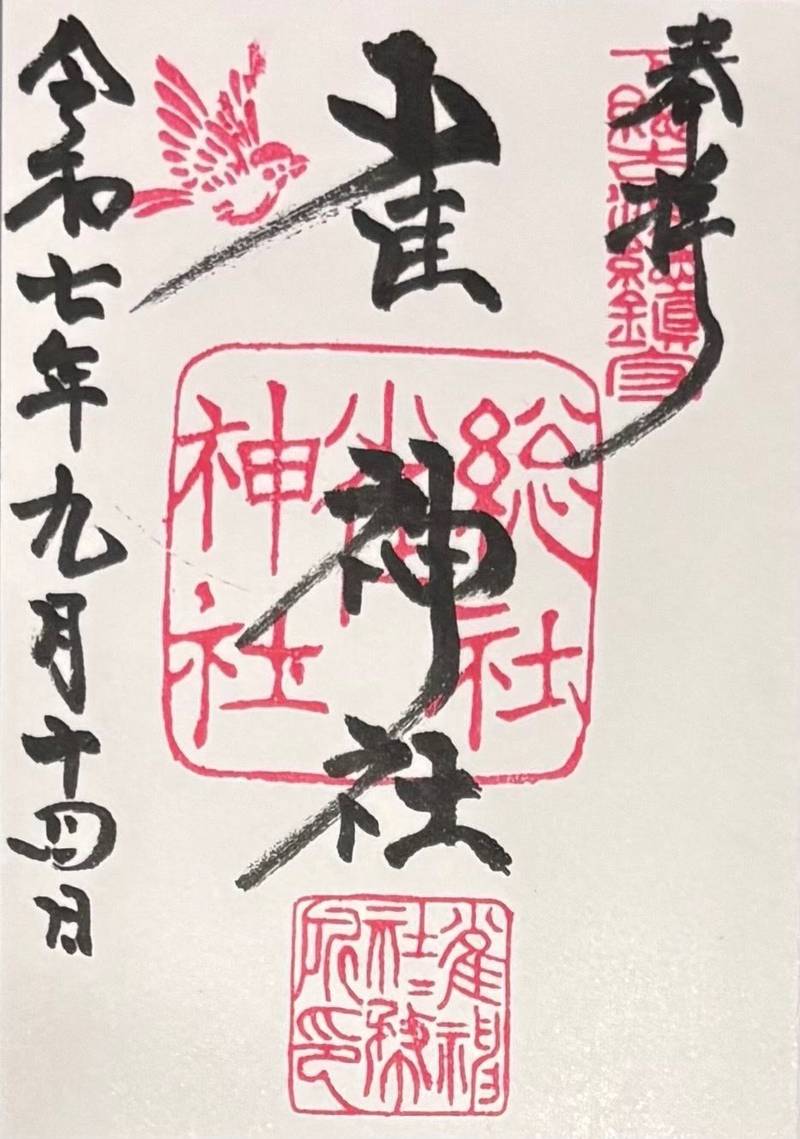 奉拝
下総古河総鎮守
雀神社
総社
雀宮
神社
雀神
社務
所印
令和七年九月十四日